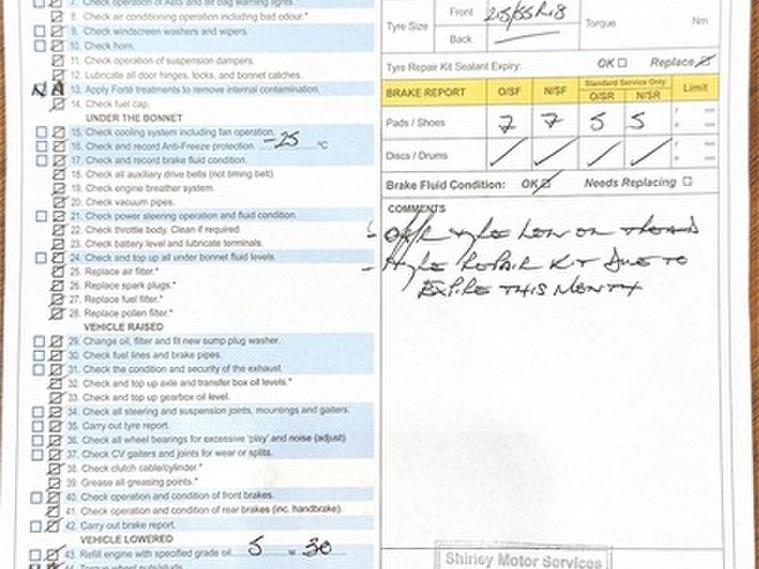 7. Check operation of ABS and air bag warning lights.*
8. Check air conditioning operation including bad odour.*
9. Check windscreen washers and wipers.
10. Check horn.
11. Check operation of suspension dampers.
12. Lubricate all door hinges, locks, and bonnet catches.
N/A 13. Apply Forté treatments to remove internal contamination.
14. Check fuel cap.
UNDER THE BONNET
15. Check cooling system including fan operation.
16. Check and record Anti-Freeze protection. -25 °C
17. Check and record brake fluid condition.
18. Check all auxiliary drive belts (not timing belt)
19. Check engine breather system.
20. Check vacuum pipes.
21. Check power steering operation and fluid condition.
22. Check throttle body. Clean if required
23. Check battery level and lubricate terminals.
24. Check and top up all under bonnet fluid levels.
25. Replace air filter.*
26. Replace spark plugs.*
27. Replace fuel filter.*
28. Replace pollen filter.*
VEHICLE RAISED
29. Change oil, filter and fit new sump plug washer.
30. Check fuel lines and brake pipes.
31. Check the condition and security of the exhaust.
32. Check and top up axle and transfer box oil levels.*
33. Check and top up gearbox oil level.
34. Check all steering and suspension joints, mountings and gaiters.
35. Carry out tyre report.
36. Check all wheel bearings for excessive 'play' and noise (adjust).
37. Check CV gaiters and joints for wear or splits.
38. Check clutch cable/cylinder.*
39. Grease all greasing points.*
40. Check operation and condition of front brakes.
41. Check operation and condition of rear brakes (inc. handbrake).
42. Carry out brake report.
VEHICLE LOWERED
43. Refill engine with specified grade oil. 5 w 30
44. Torque wheel nuts/studs
Tyre Size Front Torque Nm
Back
Tyre Repair Kit Sealant Expiry: OK Replace
BRAKE REPORT O/SF N/SF Standard Service Only O/SR N/SR Limit
Pads / Shoes 7 7 5 5 F mm
R mm
Discs / Drums F mm
R mm
Brake Fluid Condition: OK Needs Replacing
COMMENTS
- TYRE LOW ON TREAD
- TYRE REPAIR KIT DUE TO
EXPIRE THIS MONTH
Shirley Motor Services